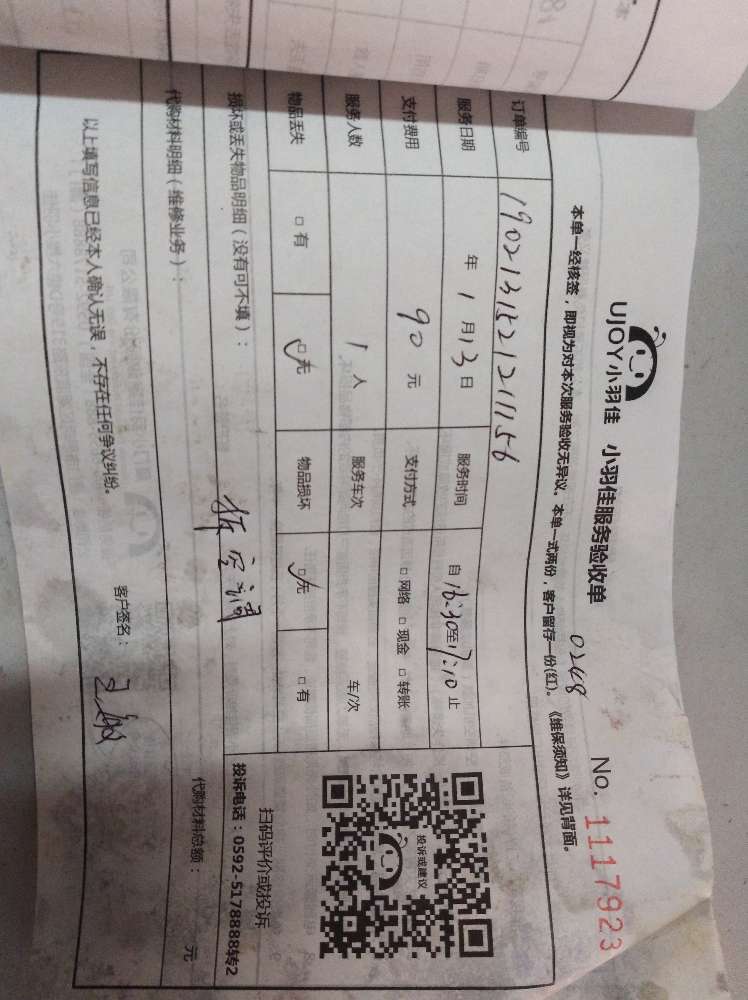 UJOY小羽佳 小羽佳服务验收单
0248
No. 1117923
本单一经核签，即视为对本次服务验收无异议。本单一式两份，客户留存一份(红)。《维保须知》详见背面。
订单编号 19021315212111156
服务日期 年 1 月 13 日 服务时间 自 16:30 至 17:10 止
支付费用 90 元 支付方式 □ 网络 □ 现金 □ 转账
服务人数 1 人 服务车次 车/次
物品丢失 □ 有 □ 无 物品损坏 □ 无 □ 有
投诉或建议
扫码评价或投诉
投诉电话：0592-5178888转2
损坏或丢失物品明细（没有可不填）：
拆空调
代购材料明细（维修业务）： 代购材料总额： 元
以上填写信息已经本人确认无误，不存在任何争议纠纷。 客户签名：